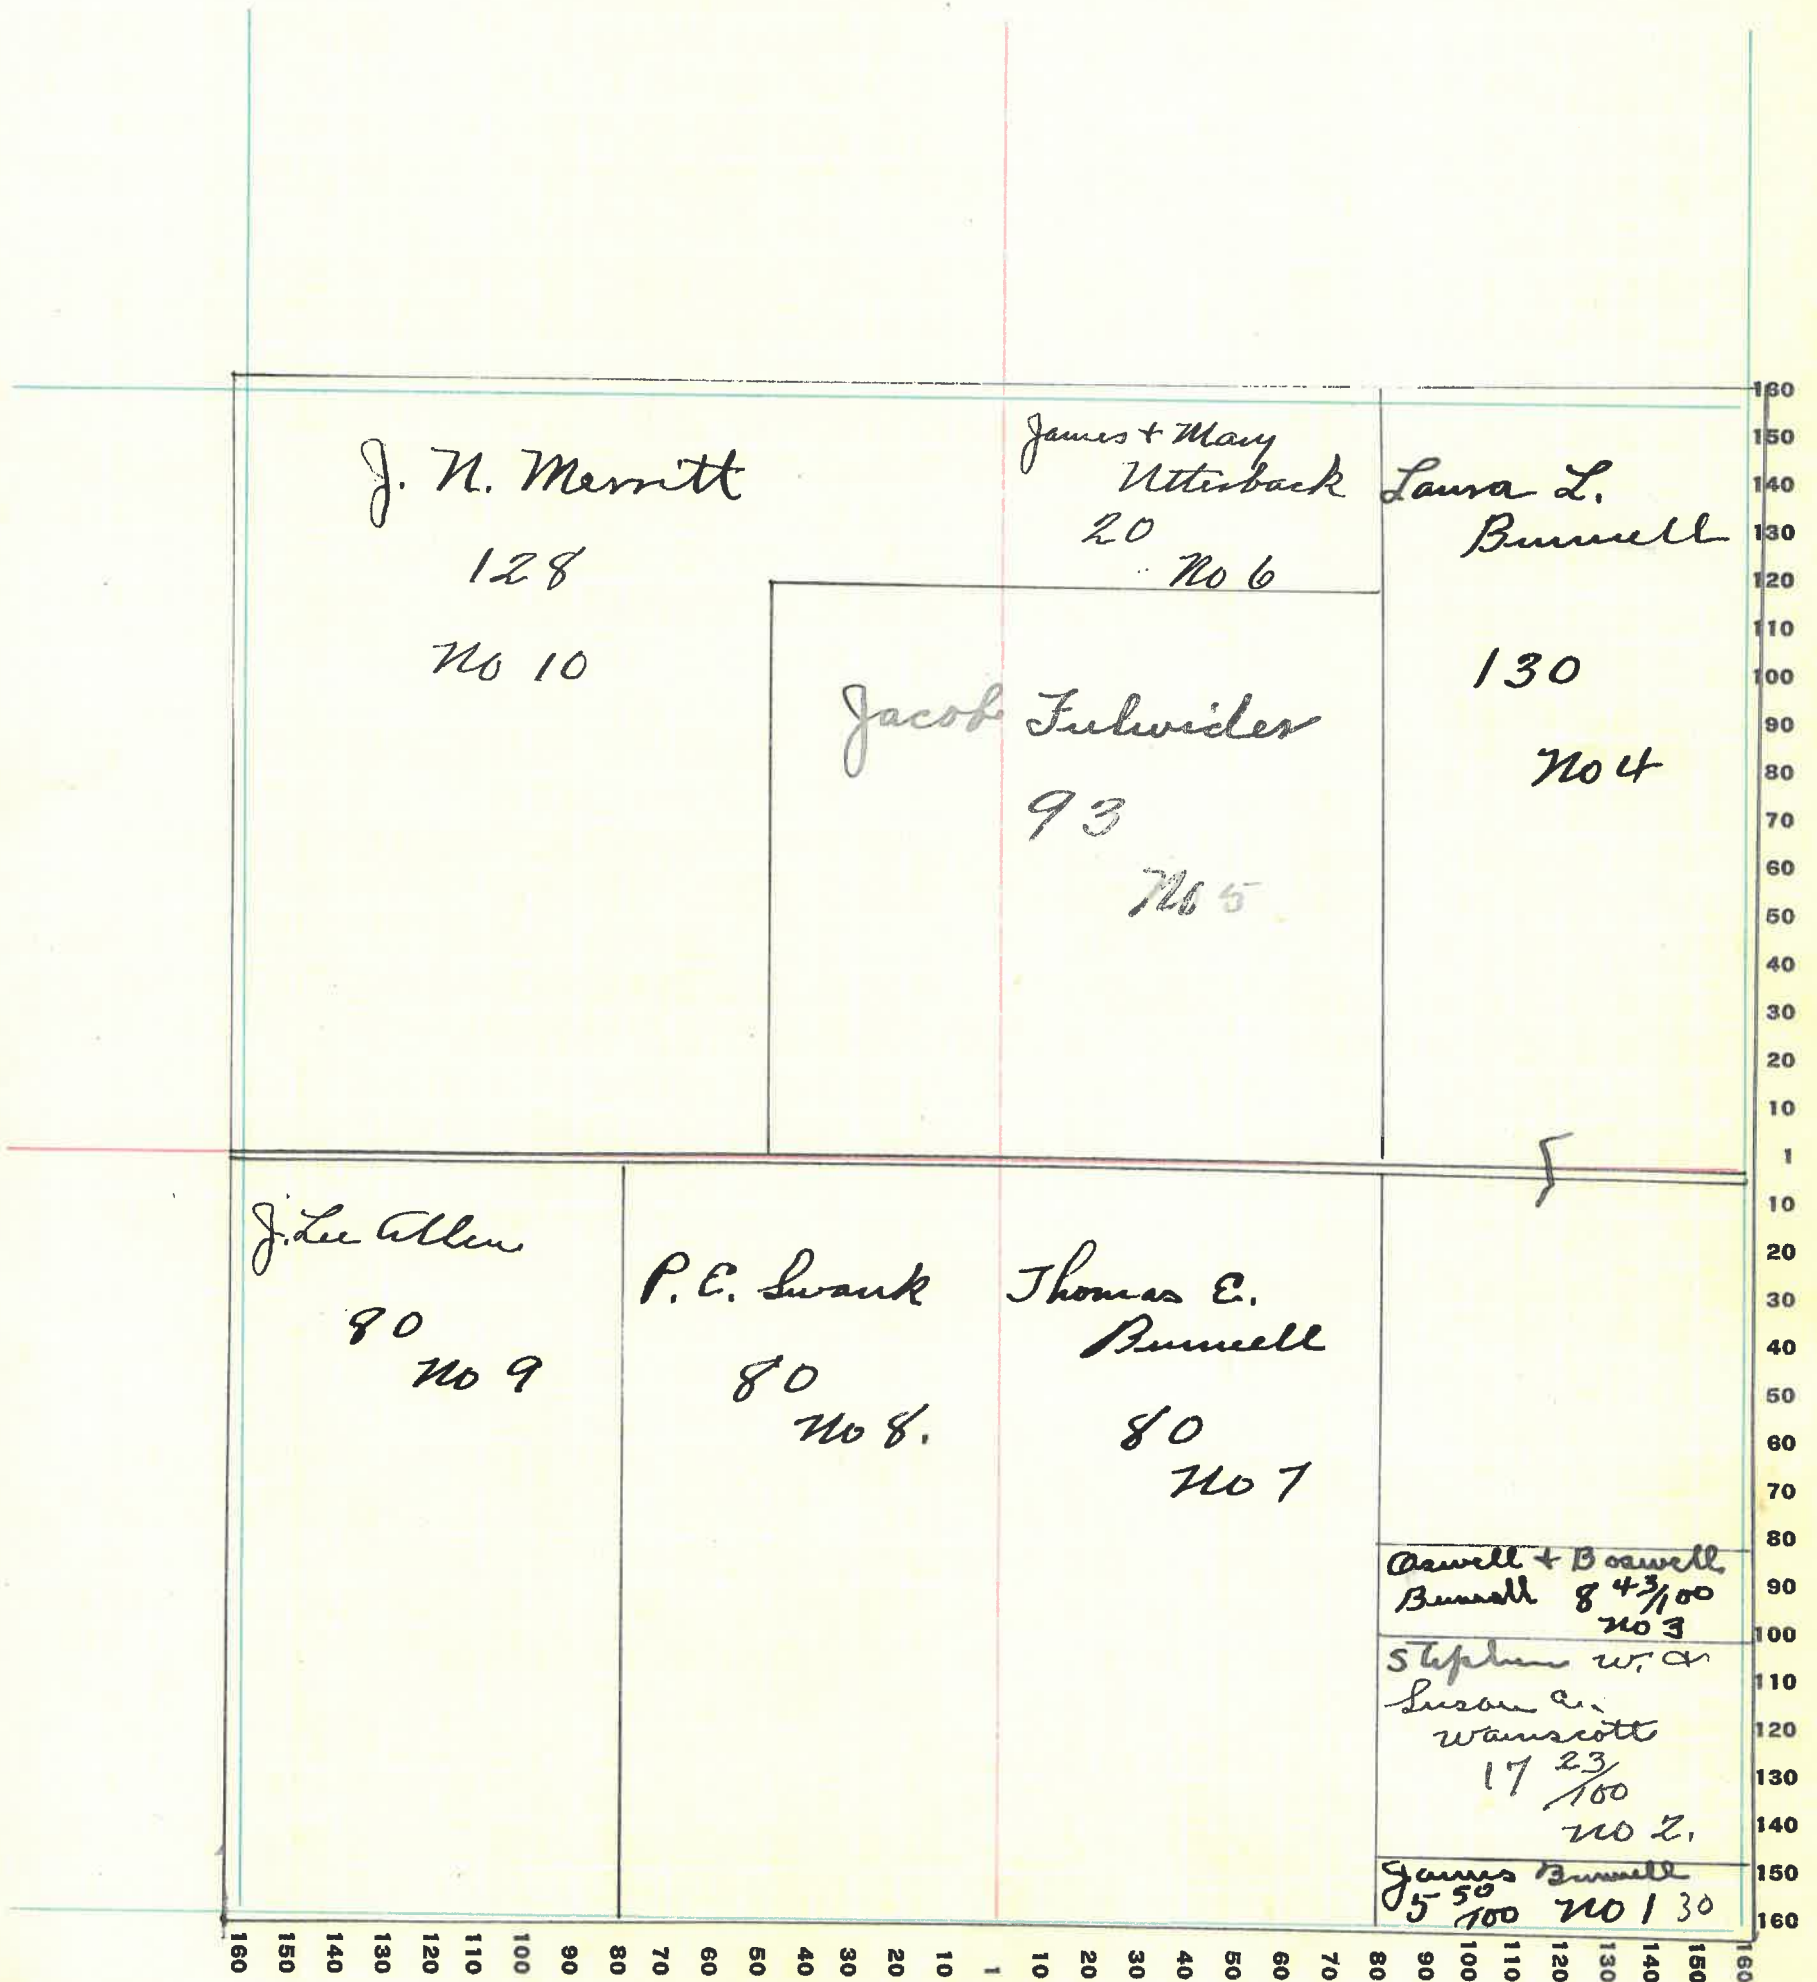 J. N. Merritt
128
No 10
James + Mary
Utterback
20
No 6
Laura L.
Bunnell
130
No 4
Jacob Fulwider
93
No 5
J. Lee Allen
80
No 9
P. E. Swank
80
No 8.
Thomas E.
Bunnell
80
No 7
Oswell + Boswell
Bunnell 8 43/100
No 3
Stephen W. &
Susan A.
Wainscott
17 23/100
No 2.
James Bunnell
5 50/100 No 1 30
160
150
140
130
120
110
100
90
80
70
60
50
40
30
20
10
1
10
20
30
40
50
60
70
80
90
100
110
120
130
140
150
160
160 150 140 130 120 110 100 90 80 70 60 50 40 30 20 10 1 10 20 30 40 50 60 70 80 90 100 110 120 130 140 150 160